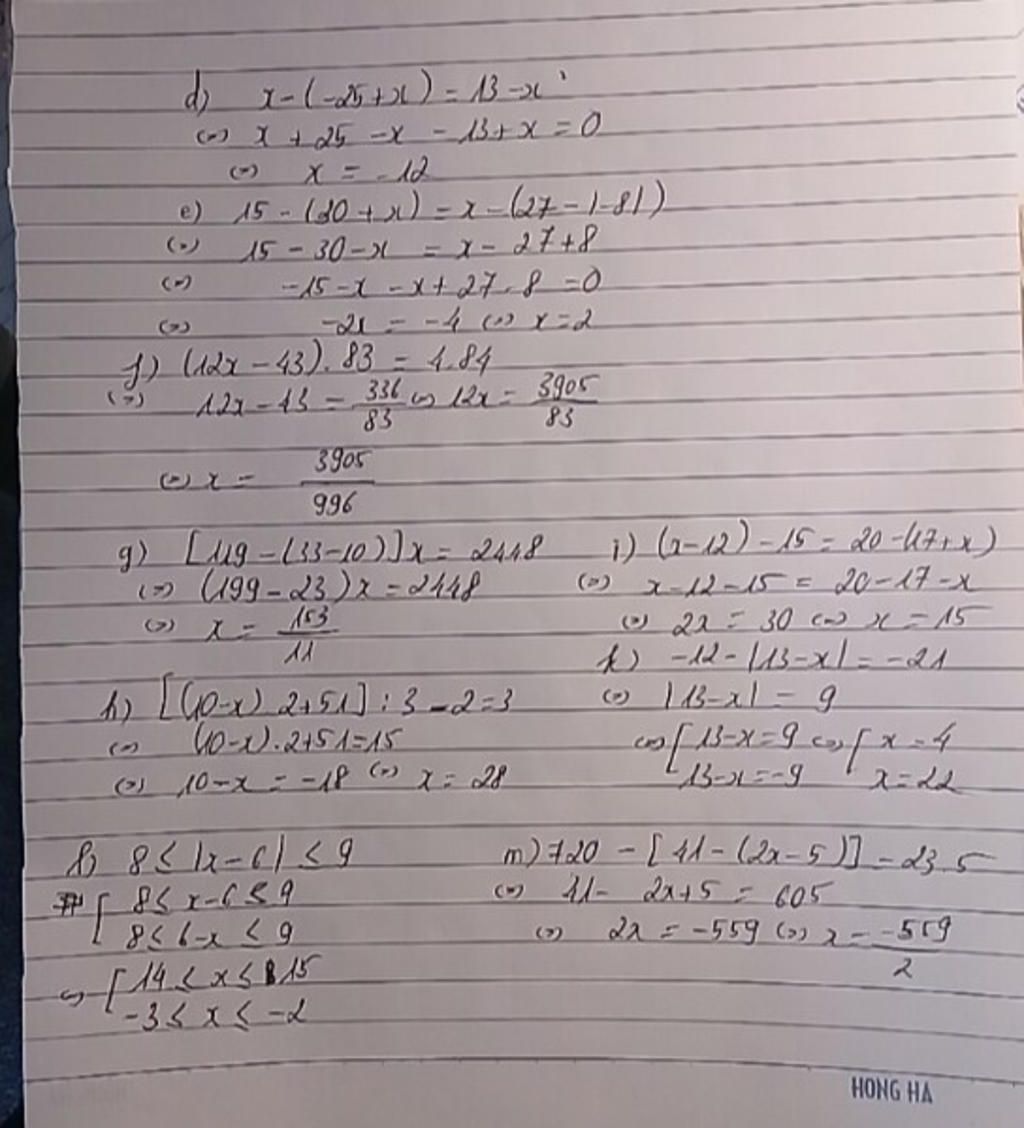 d) x-(-25+x) = 13-x
(=) x+25-x-13+x=0
(=) x = -12
e) 15-(30+x) = x-(27-|-8|)
(=) 15-30-x = x-27+8
(=) -15-x-x+27-8=0
(=) -2x = -4 (=) x=2
f) (12x-43).83 = 4.84
(=) 12x-43 = 336/83 (=) 12x = 3905/83
(=) x = 3905/996
g) [119-(33-10)]x = 2448
(=) (199-23)x = 2448
(=) x = 153/11
h) [(10-x).2+51]:3-2=3
(=) (10-x).2+51=15
(=) 10-x = -18 (=) x = 28
i) (x-12)-15 = 20-(17+x)
(=) x-12-15 = 20-17-x
(=) 2x = 30 (=) x = 15
k) -12-|13-x| = -21
(=) |13-x| = 9
(=) [ 13-x=9 (=) [ x=4
13-x=-9 x=22
l) 8 ≤ |x-6| ≤ 9
[ 8 ≤ x-6 ≤ 9
8 ≤ 6-x ≤ 9
(=) [ 14 ≤ x ≤ 15
-3 ≤ x ≤ -2
m) 720-[41-(2x-5)] = 23.5
(=) 41-2x+5 = 605
(=) 2x = -559 (=) x = -559/2
HONG HA